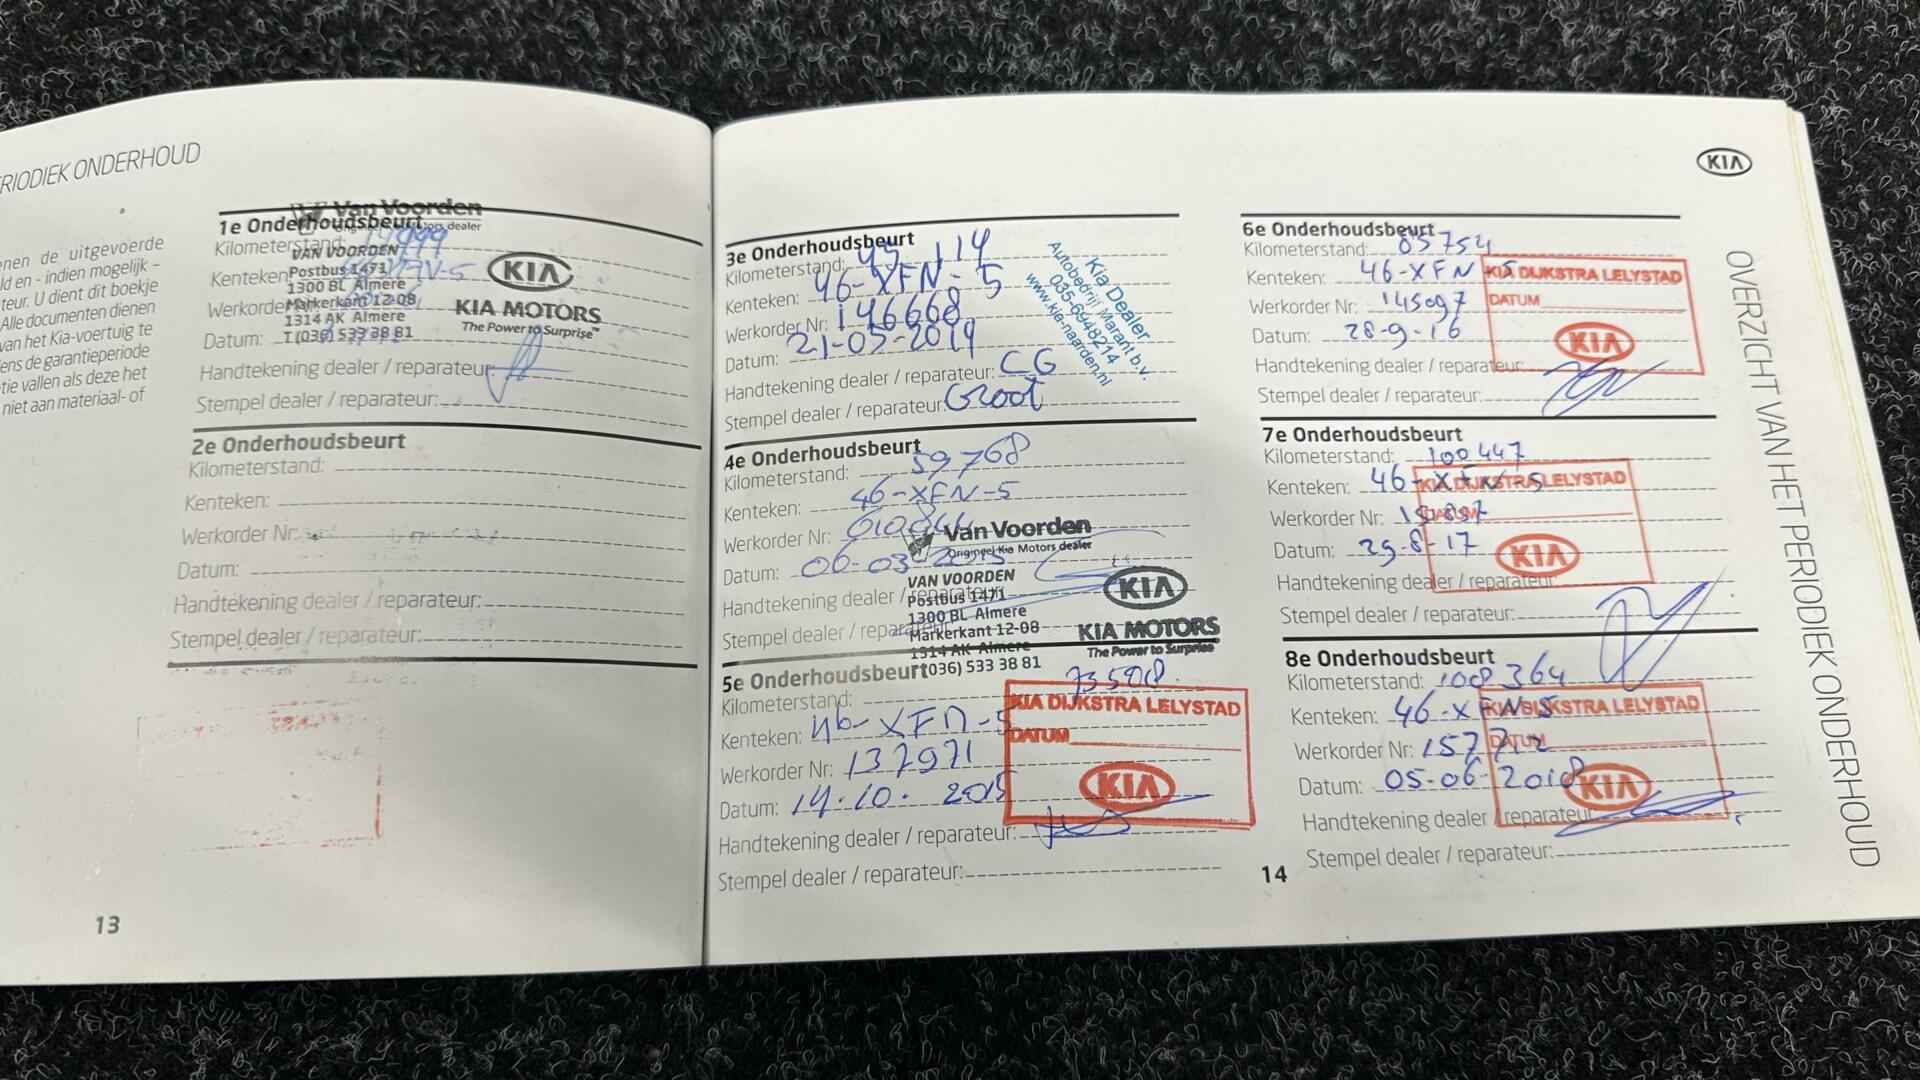 RIODIEK ONDERHOUD
nen de uitgevoerde
ld en - indien mogelijk -
teur. U dient dit boekje
Alle documenten dienen
van het Kia-voertuig te
ens de garantieperiode
tie vallen als deze het
niet aan materiaal- of
1e Onderhoudsbeurt
Van Voorden
Kilometerstand:
Kenteken:
Werkorder
Datum:
VAN VOORDEN
Postbus 1471
1300 BL Almere
Markerkant 12-08
1314 AK Almere
T (036) 533 38 81
KIA
KIA MOTORS
The Power to Surprise™
Handtekening dealer / reparateur:
Stempel dealer / reparateur:
2e Onderhoudsbeurt
Kilometerstand:
Kenteken:
Werkorder Nr:
Datum:
Handtekening dealer / reparateur:
Stempel dealer / reparateur:
13
3e Onderhoudsbeurt
Kilometerstand: 45 114
Kenteken: 46-XFN-5
Werkorder Nr: 146668
Datum: 21-05-2014
Handtekening dealer / reparateur: CG
Stempel dealer / reparateur: Groot
Kia Dealer
Autobedrijf Marant b.v.
035-6948214
www.kia-naarden.nl
4e Onderhoudsbeurt
Kilometerstand: 59768
Kenteken: 46-XFN-5
Werkorder Nr:
Datum: 06-03-2015
Handtekening dealer / reparateur:
Stempel dealer / reparateur:
Van Voorden
Origineel Kia Motors dealer
VAN VOORDEN
Postbus 1471
1300 BL Almere
Markerkant 12-08
1314 AK Almere
T (036) 533 38 81
KIA
KIA MOTORS
The Power to Surprise
5e Onderhoudsbeurt
Kilometerstand:
Kenteken: 46-XFN-5
Werkorder Nr: 137971
Datum: 14.10. 2015
Handtekening dealer / reparateur:
Stempel dealer / reparateur:
KIA DIJKSTRA LELYSTAD
DATUM
KIA
KIA
6e Onderhoudsbeurt
Kilometerstand: 85754
Kenteken: 46-XFN-5
Werkorder Nr: 145097
Datum: 28-9-16
Handtekening dealer / reparateur:
Stempel dealer / reparateur:
KIA DIJKSTRA LELYSTAD
DATUM
KIA
7e Onderhoudsbeurt
Kilometerstand: 100447
Kenteken: 46-XFN-5
Werkorder Nr:
Datum: 29-8-17
Handtekening dealer / reparateur:
Stempel dealer / reparateur:
KIA DIJKSTRA LELYSTAD
DATUM
KIA
8e Onderhoudsbeurt
Kilometerstand: 108364
Kenteken: 46-XFN-5
Werkorder Nr:
Datum: 05-06-2018
Handtekening dealer / reparateur:
Stempel dealer / reparateur:
KIA DIJKSTRA LELYSTAD
DATUM
KIA
14
OVERZICHT VAN HET PERIODIEK ONDERHOUD